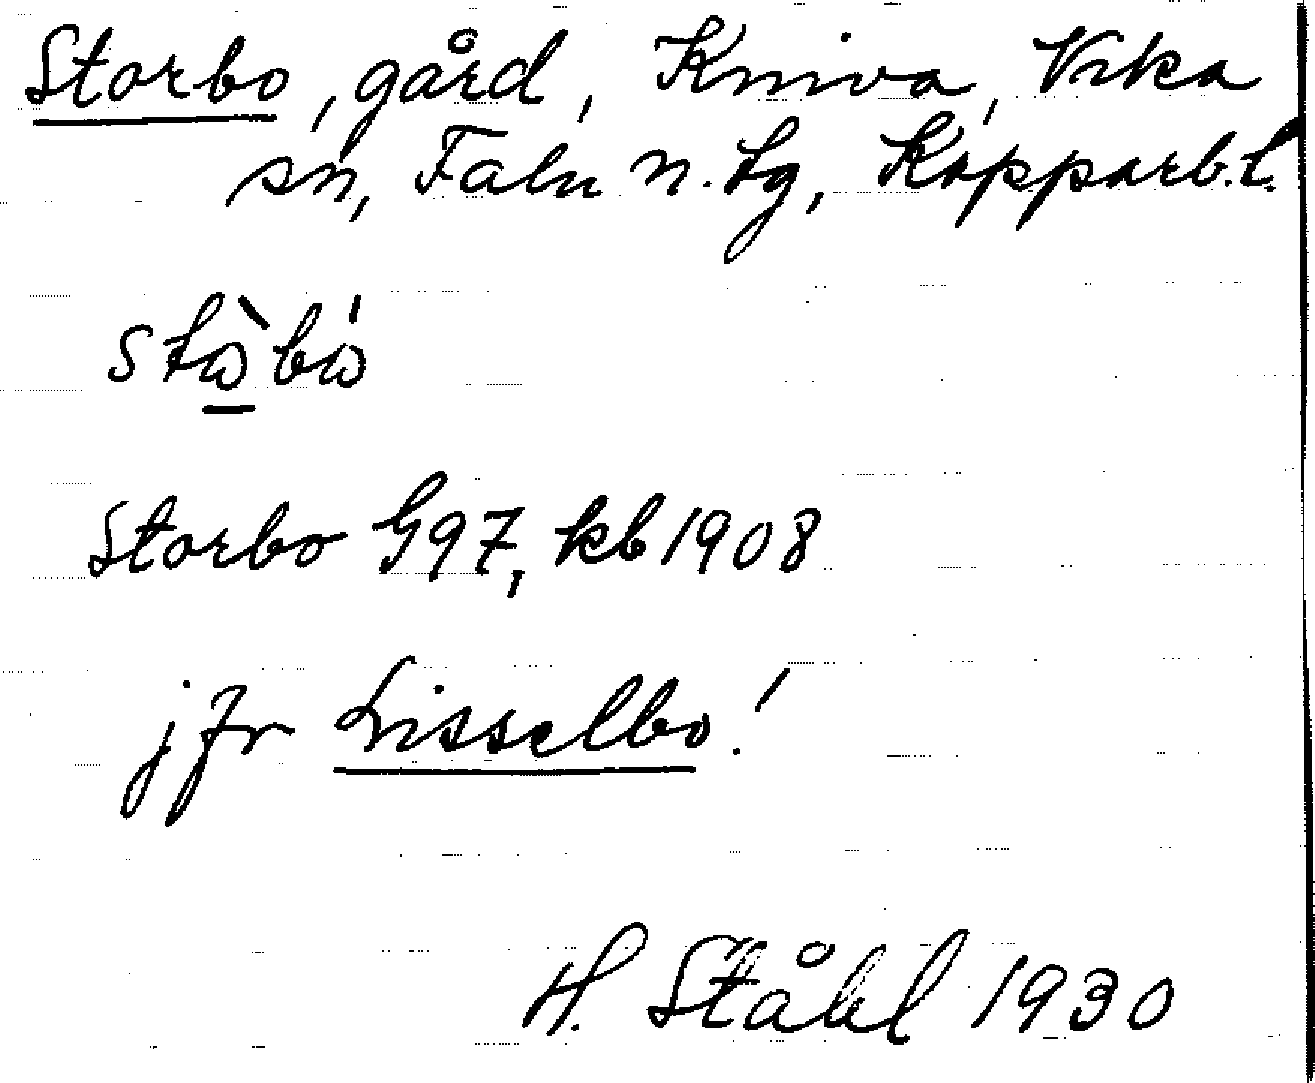 Storbo, gård, Kniva, Vika
sn, Falu n. tg, Kopparb. l.
Storbo G97, kb 1908
jfr Lisselbo!
H. Ståhl 1930